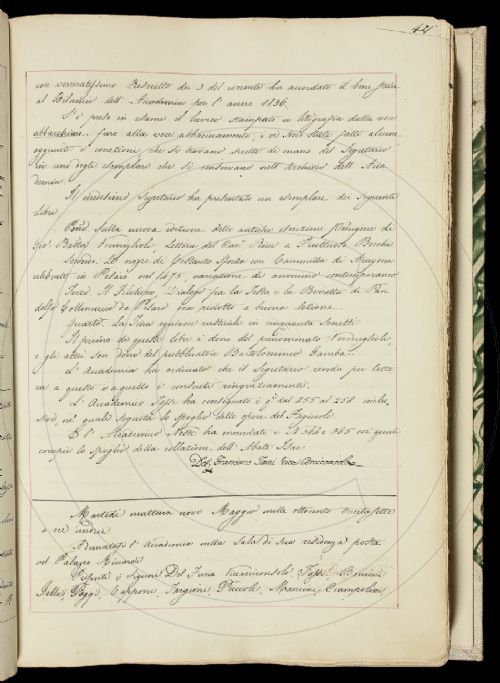 42
con veneratissimo Rescritto de 3 del corrente ha accordato il bene stare
al Bilancio dell'Accademia per l'anno 1836.
S'è preso in esame il lavoro stampato in litografia dalla voce
abbacchiare fino alla voce abbassamento e vi sono state fatte alcune
aggiunte e correzioni che si trovano scritte di mano del Segretario
in uno degli esemplari che si conservano nell'Archivio dell'Acca
demia.
Il medesimo Segretario ha presentato un esemplare dei seguenti
libri
Primo Sulla nuova edizione delle antiche iscrizioni Perugine di
Gio: Batta Vermiglioli Lettera del Cav.
Secondo. Le nozze di Costanzo Sforza con Cammilla di Aragona
celebrate in Pesaro nel 1475, narrazione di anonimo contemporaneo
Terzo. Il Filotimo, Dialogo fra la Testa e la Berretta di Pan
dolfo Collenuccio da Pesaro ora ridotto a buona lezione.
Quarto. La Tina equivoci rusticali in cinquanta Sonetti
Il primo de' questi libri è dono del prenominato Vermiglioli,
e gli altri son dono del pubblicatore Bartolommeo Gamba.
L'Accademia ha ordinato che il Segretario renda per lette
ra a questo e a quello i consueti ringraziamenti.
L'Accademico ha consegnato i q.i dal 255 al 258 inclu
sive, ne' quali seguita lo spoglio delle opere del Fagiuoli.
E l'Accademico Nesti ha mandato i N. 564 e 565 coi quali
compie lo spoglio della collazione dell'Abate Isac
Francesco Vice Arciconsolo
Martedì mattina nove Maggio mille ottocento trentasette
a ore undici
Adunatasi l'Accademia nella Sala di sua residenza posta
nel Palazzo Riccardi
Presenti i Signori Del Furia Vicearciconsolo, Bencini
Poggi, Capponi, Targioni Piccioli, Mancini, Ciampolini,